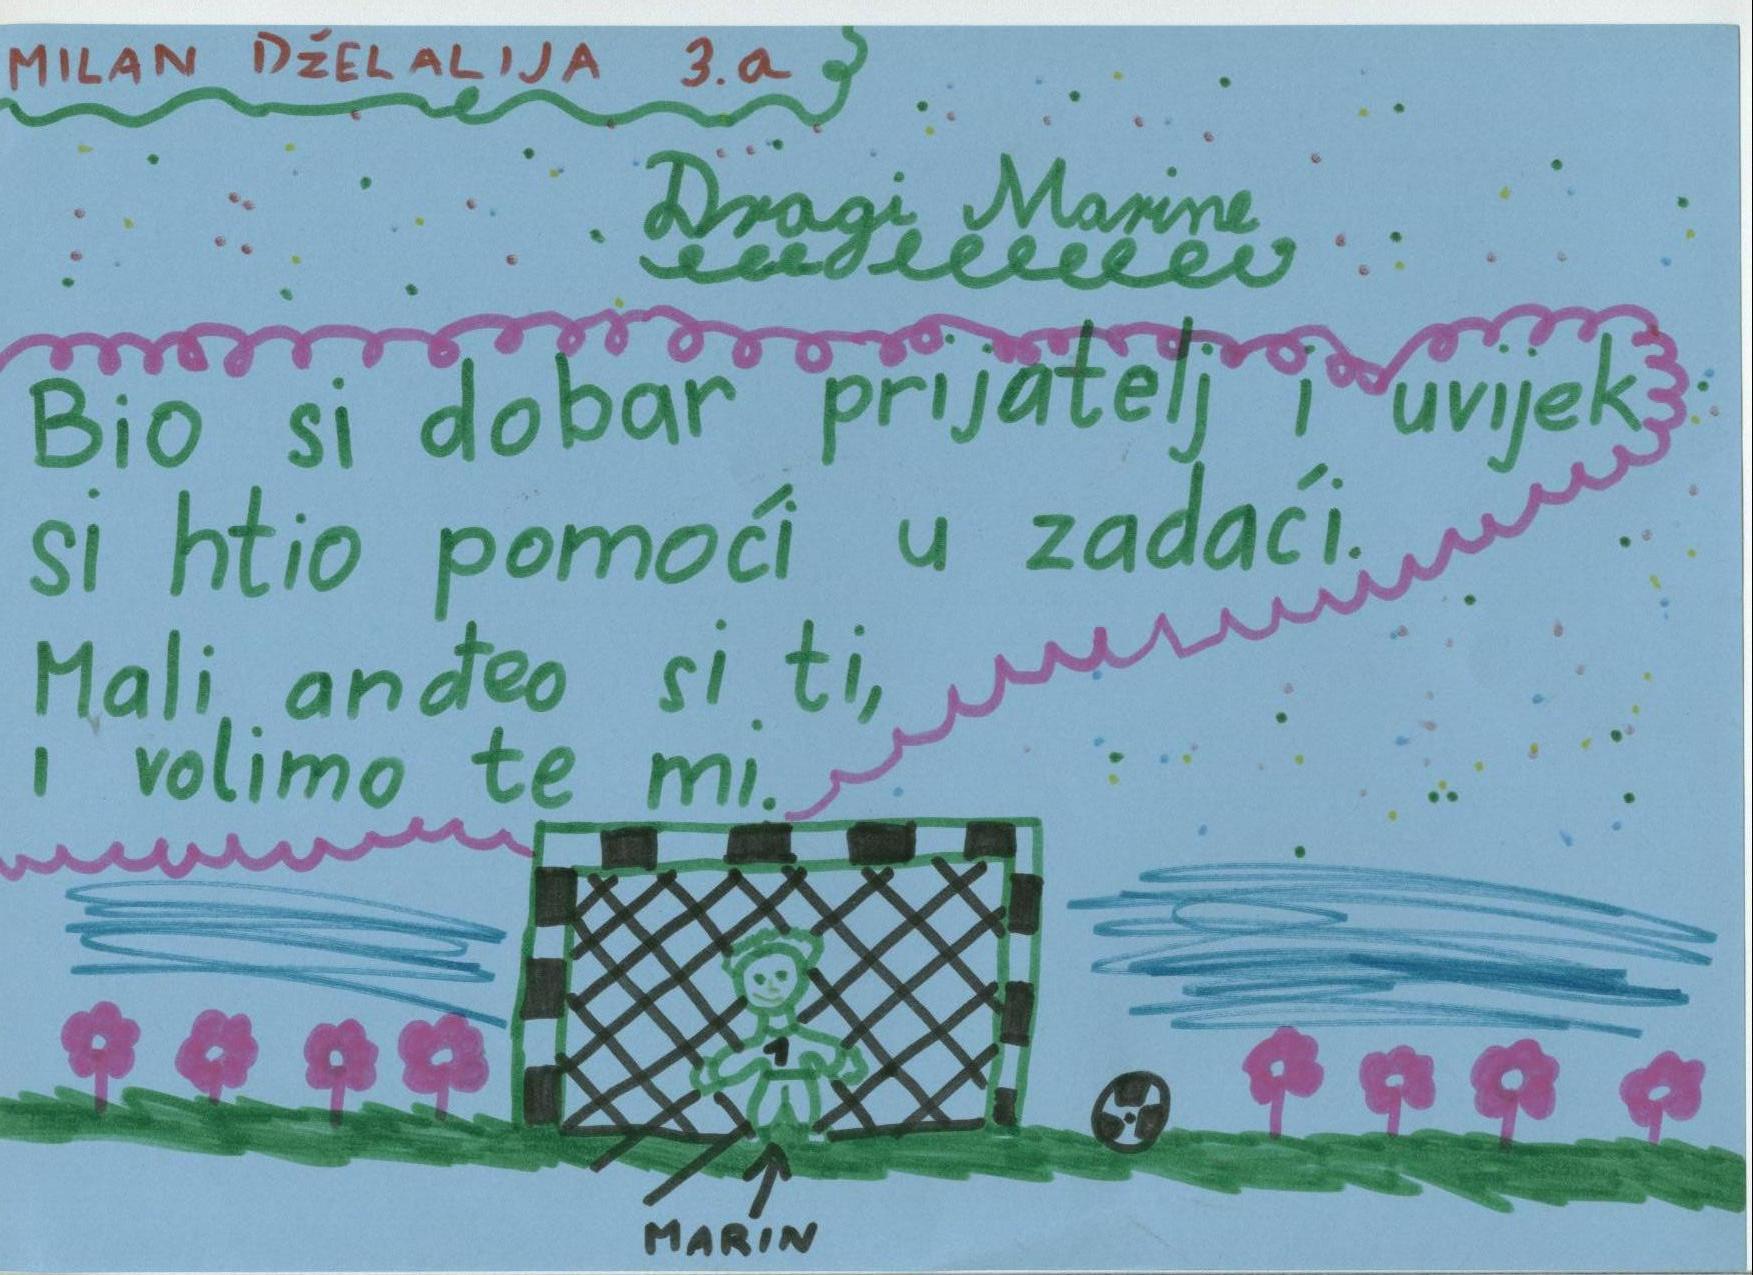 MILAN DŽELALIJA 3.a
Dragi Marine
Bio si dobar prijatelj i uvijek
si htio pomoći u zadaći.
Mali anđeo si ti,
i volimo te mi.
1
MARIN